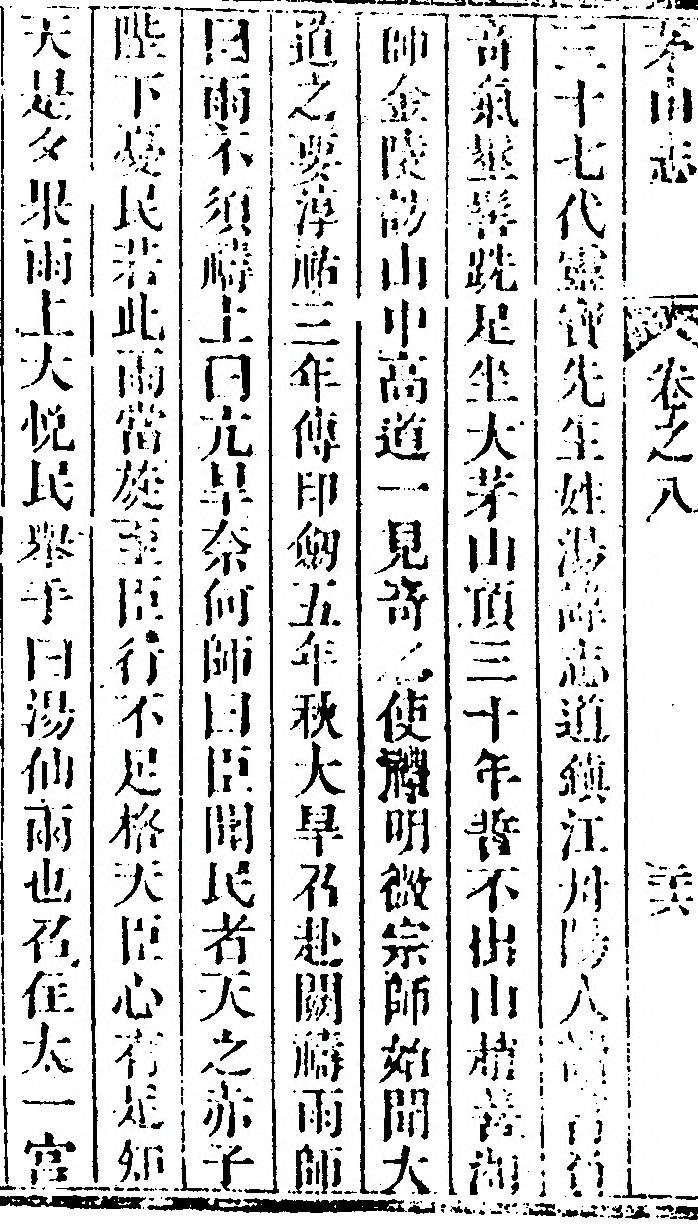 茅山志
卷之八
三十七代靈寶先生姓湯諱志道鎮江丹陽人
奇氣 跣足坐大茅山頂三十年誓不出山趙善湘
師金陵 山中高道一見奇之使禮明微宗師始聞大
道之要淳祐三年傳印劒五年秋大旱召赴闕禱雨師
曰雨不須禱上曰亢旱奈何師曰臣聞民者天之赤子
陛下憂民若此雨當旋至臣行不足格天臣心有足知
天是夕果雨上大悅民舉手曰湯仙雨也召住太一宮